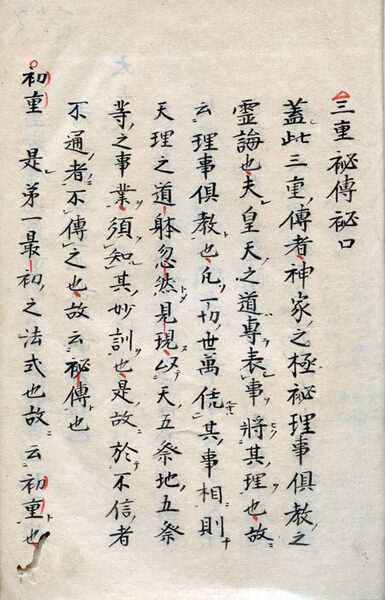 三重祕傳祕口
蓋此三重傳者神家之極祕理事俱教之
靈誨也夫皇天之道專表事將其理也故
云理事俱教也凡一切世萬其事相則
天理之道躰忽然見現以天五祭地五祭
等之事業須知其妙訓也是故於不信者
不通者不傳之也故云祕傳也
初重 是第一最初之法式也故云初重也